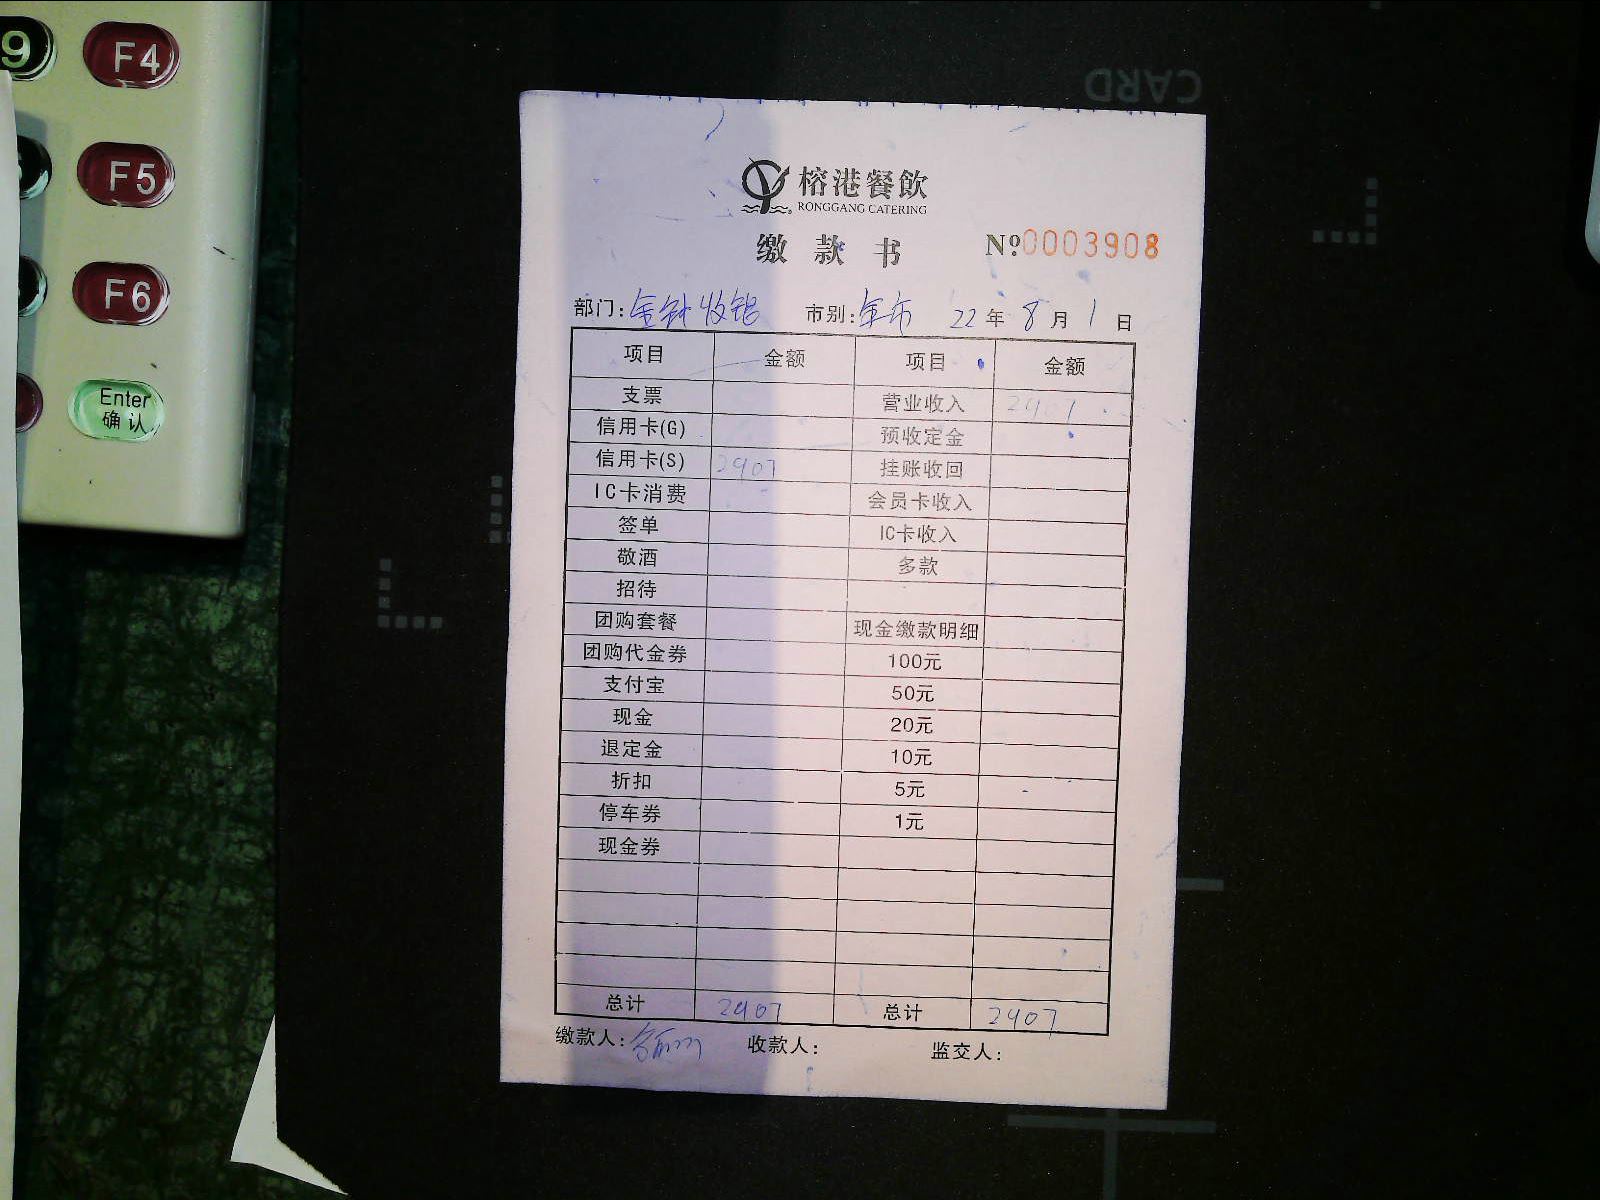 9 F4
F5
F6
Enter
确认
CARD
榕港餐飲
RONGGANG CATERING
缴款书 №0003908
部门: 市别: 22年8月1日
项目 金额 项目 金额
支票 营业收入 2407
信用卡(G) 预收定金
信用卡(S) 2407 挂账收回
IC卡消费 会员卡收入
签单 IC卡收入
敬酒 多款
招待
团购套餐 现金缴款明细
团购代金券 100元
支付宝 50元
现金 20元
退定金 10元
折扣 5元
停车券 1元
现金券
总计 2407 总计 2407
缴款人: 收款人: 监交人: